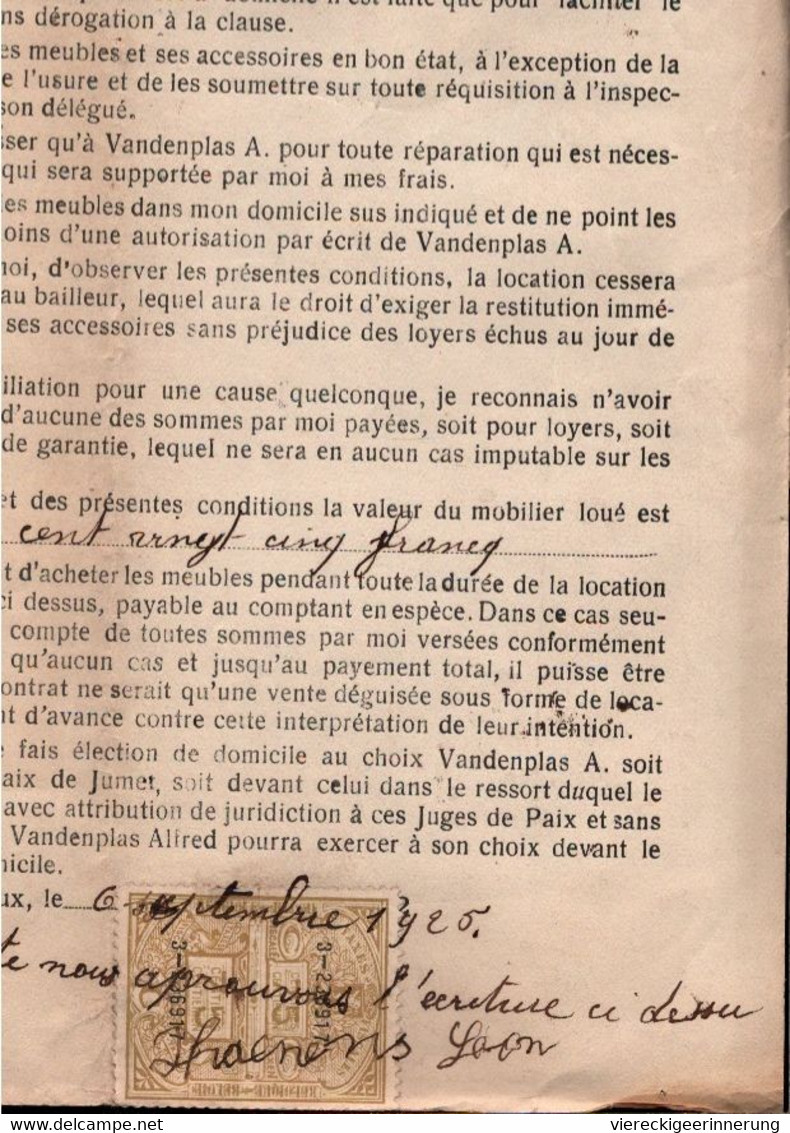 domicile n'est faite que pour faciliter le
ns dérogation à la clause.
es meubles et ses accessoires en bon état, à l'exception de la
e l'usure et de les soumettre sur toute réquisition à l'inspec-
son délégué.
sser qu'à Vandenplas A. pour toute réparation qui est néces-
qui sera supportée par moi à mes frais.
es meubles dans mon domicile sus indiqué et de ne point les
oins d'une autorisation par écrit de Vandenplas A.
noi, d'observer les présentes conditions, la location cessera
au bailleur, lequel aura le droit d'exiger la restitution immé-
ses accessoires sans préjudice des loyers échus au jour de
iliation pour une cause quelconque, je reconnais n'avoir
d'aucune des sommes par moi payées, soit pour loyers, soit
de garantie, lequel ne sera en aucun cas imputable sur les
et des présentes conditions la valeur du mobilier loué est
cent vingt cinq francq
t d'acheter les meubles pendant toute la durée de la location
ci dessus, payable au comptant en espèce. Dans ce cas seu-
compte de toutes sommes par moi versées conformément
qu'aucun cas et jusqu'au payement total, il puisse être
ontrat ne serait qu'une vente déguisée sous forme de loca-
nt d'avance contre cette interprétation de leur intention.
e fais élection de domicile au choix Vandenplas A. soit
aix de Jumet, soit devant celui dans le ressort duquel le
avec attribution de juridiction à ces Juges de Paix et sans
Vandenplas Alfred pourra exercer à son choix devant le
nicile.
ux, le 6 septembre 1925.
te nous aprouvons l'écriture ci dessu
Léon
BELGIQUE - BELGIË
viereckigeerinnerung